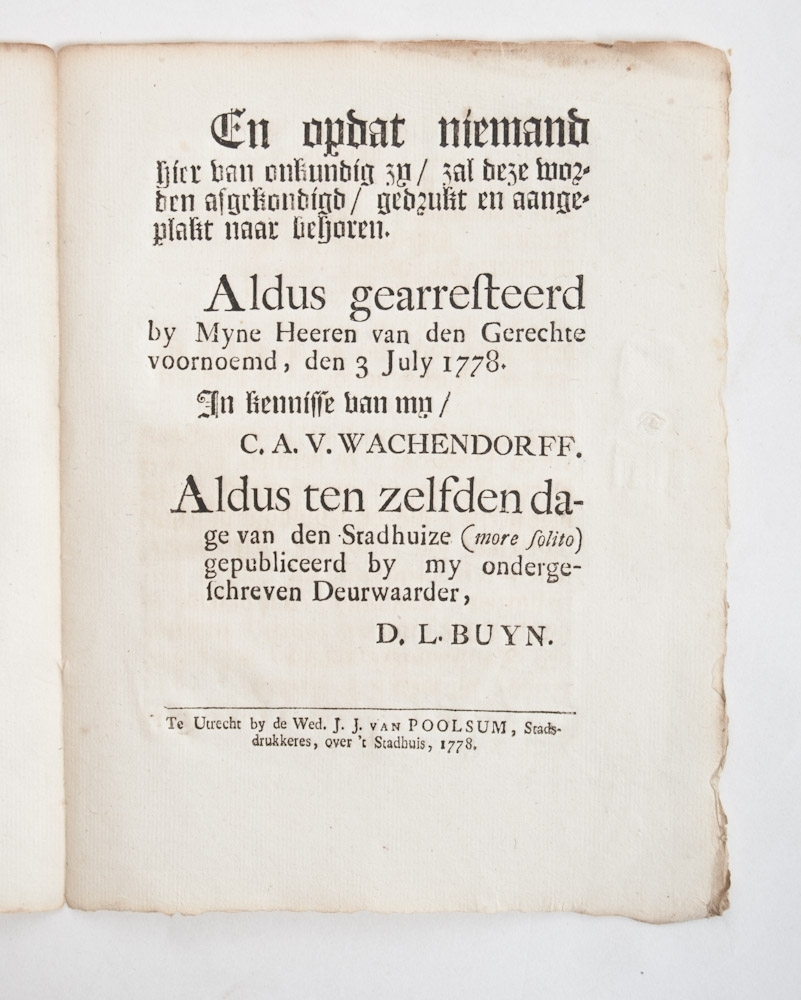 En opdat niemand
hier van onkundig zy / zal deze wor-
den afgekondigd / gedrukt en aange-
plakt naar behoren.
Aldus gearreſteerd
by Myne Heeren van den Gerechte
voornoemd, den 3 July 1778.
In kenniſſe van my /
C. A. V. WACHENDORFF.
Aldus ten zelfden da-
ge van den Stadhuize (more ſolito)
gepubliceerd by my onderge-
ſchreven Deurwaarder,
D. L. BUYN.
Te Utrecht by de Wed. J. J. VAN POOLSUM, Stads-
drukkeres, over 't Stadhuis, 1778.